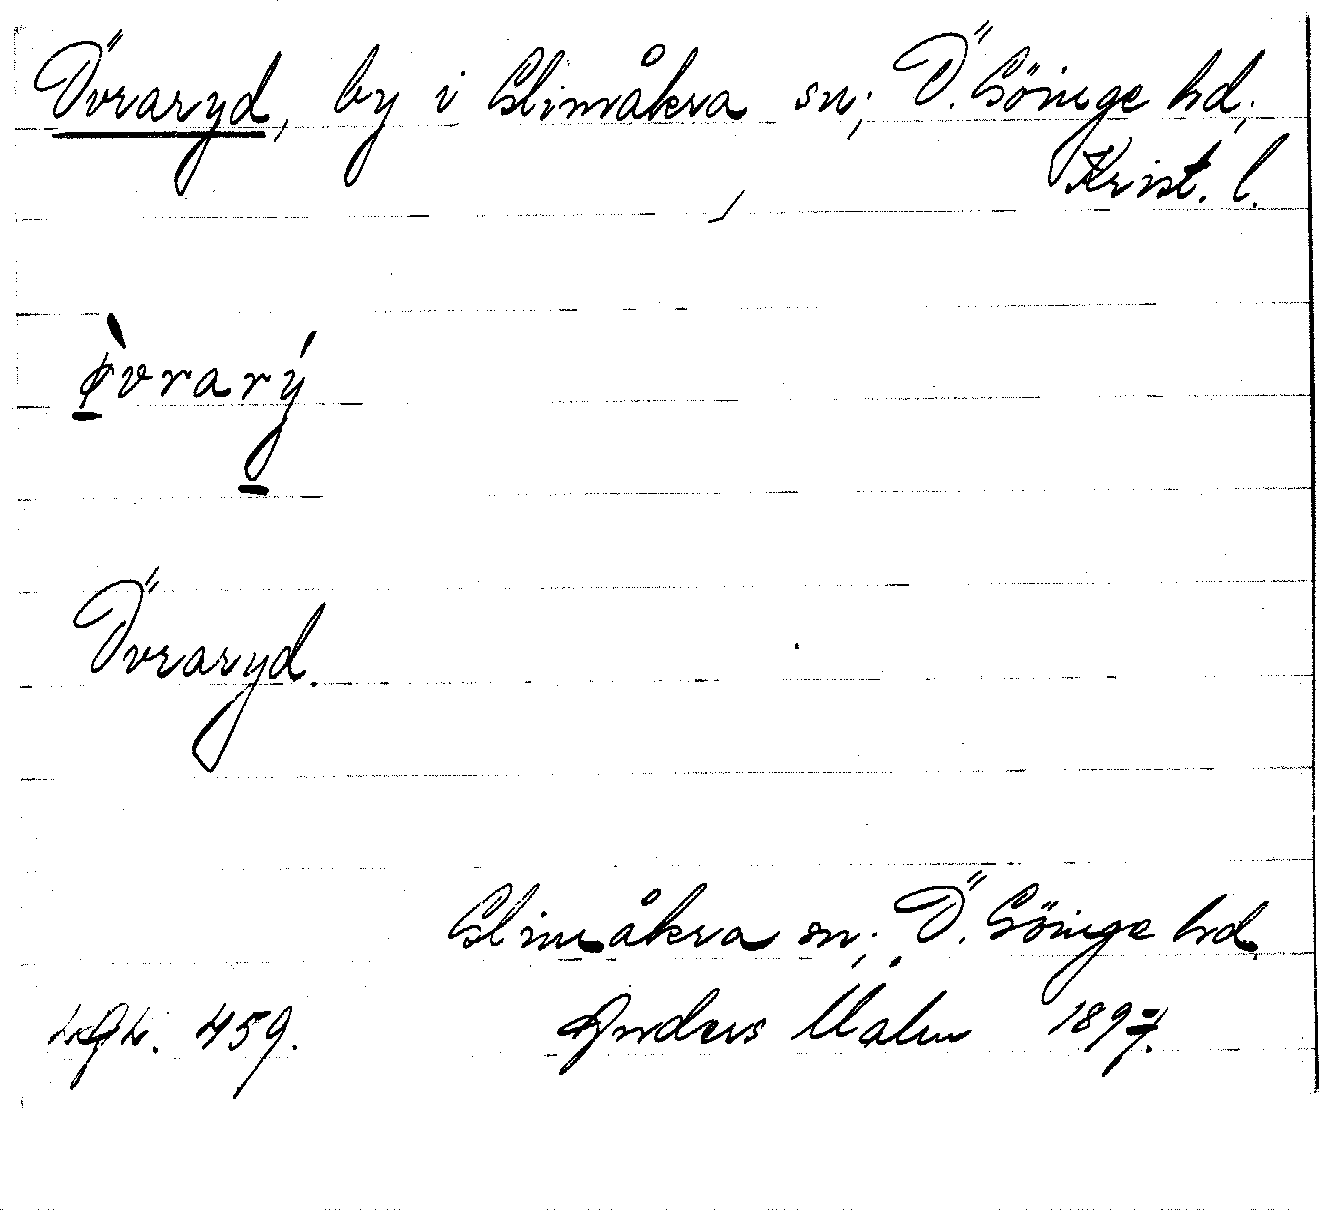 Övraryd, by i Glimåkra sn, Ö. Göinge hd,
Krist. l.
ø̀vrarý
Övraryd.
Glimåkra sn, Ö. Göinge hd.
459. Anders Malm 1897.